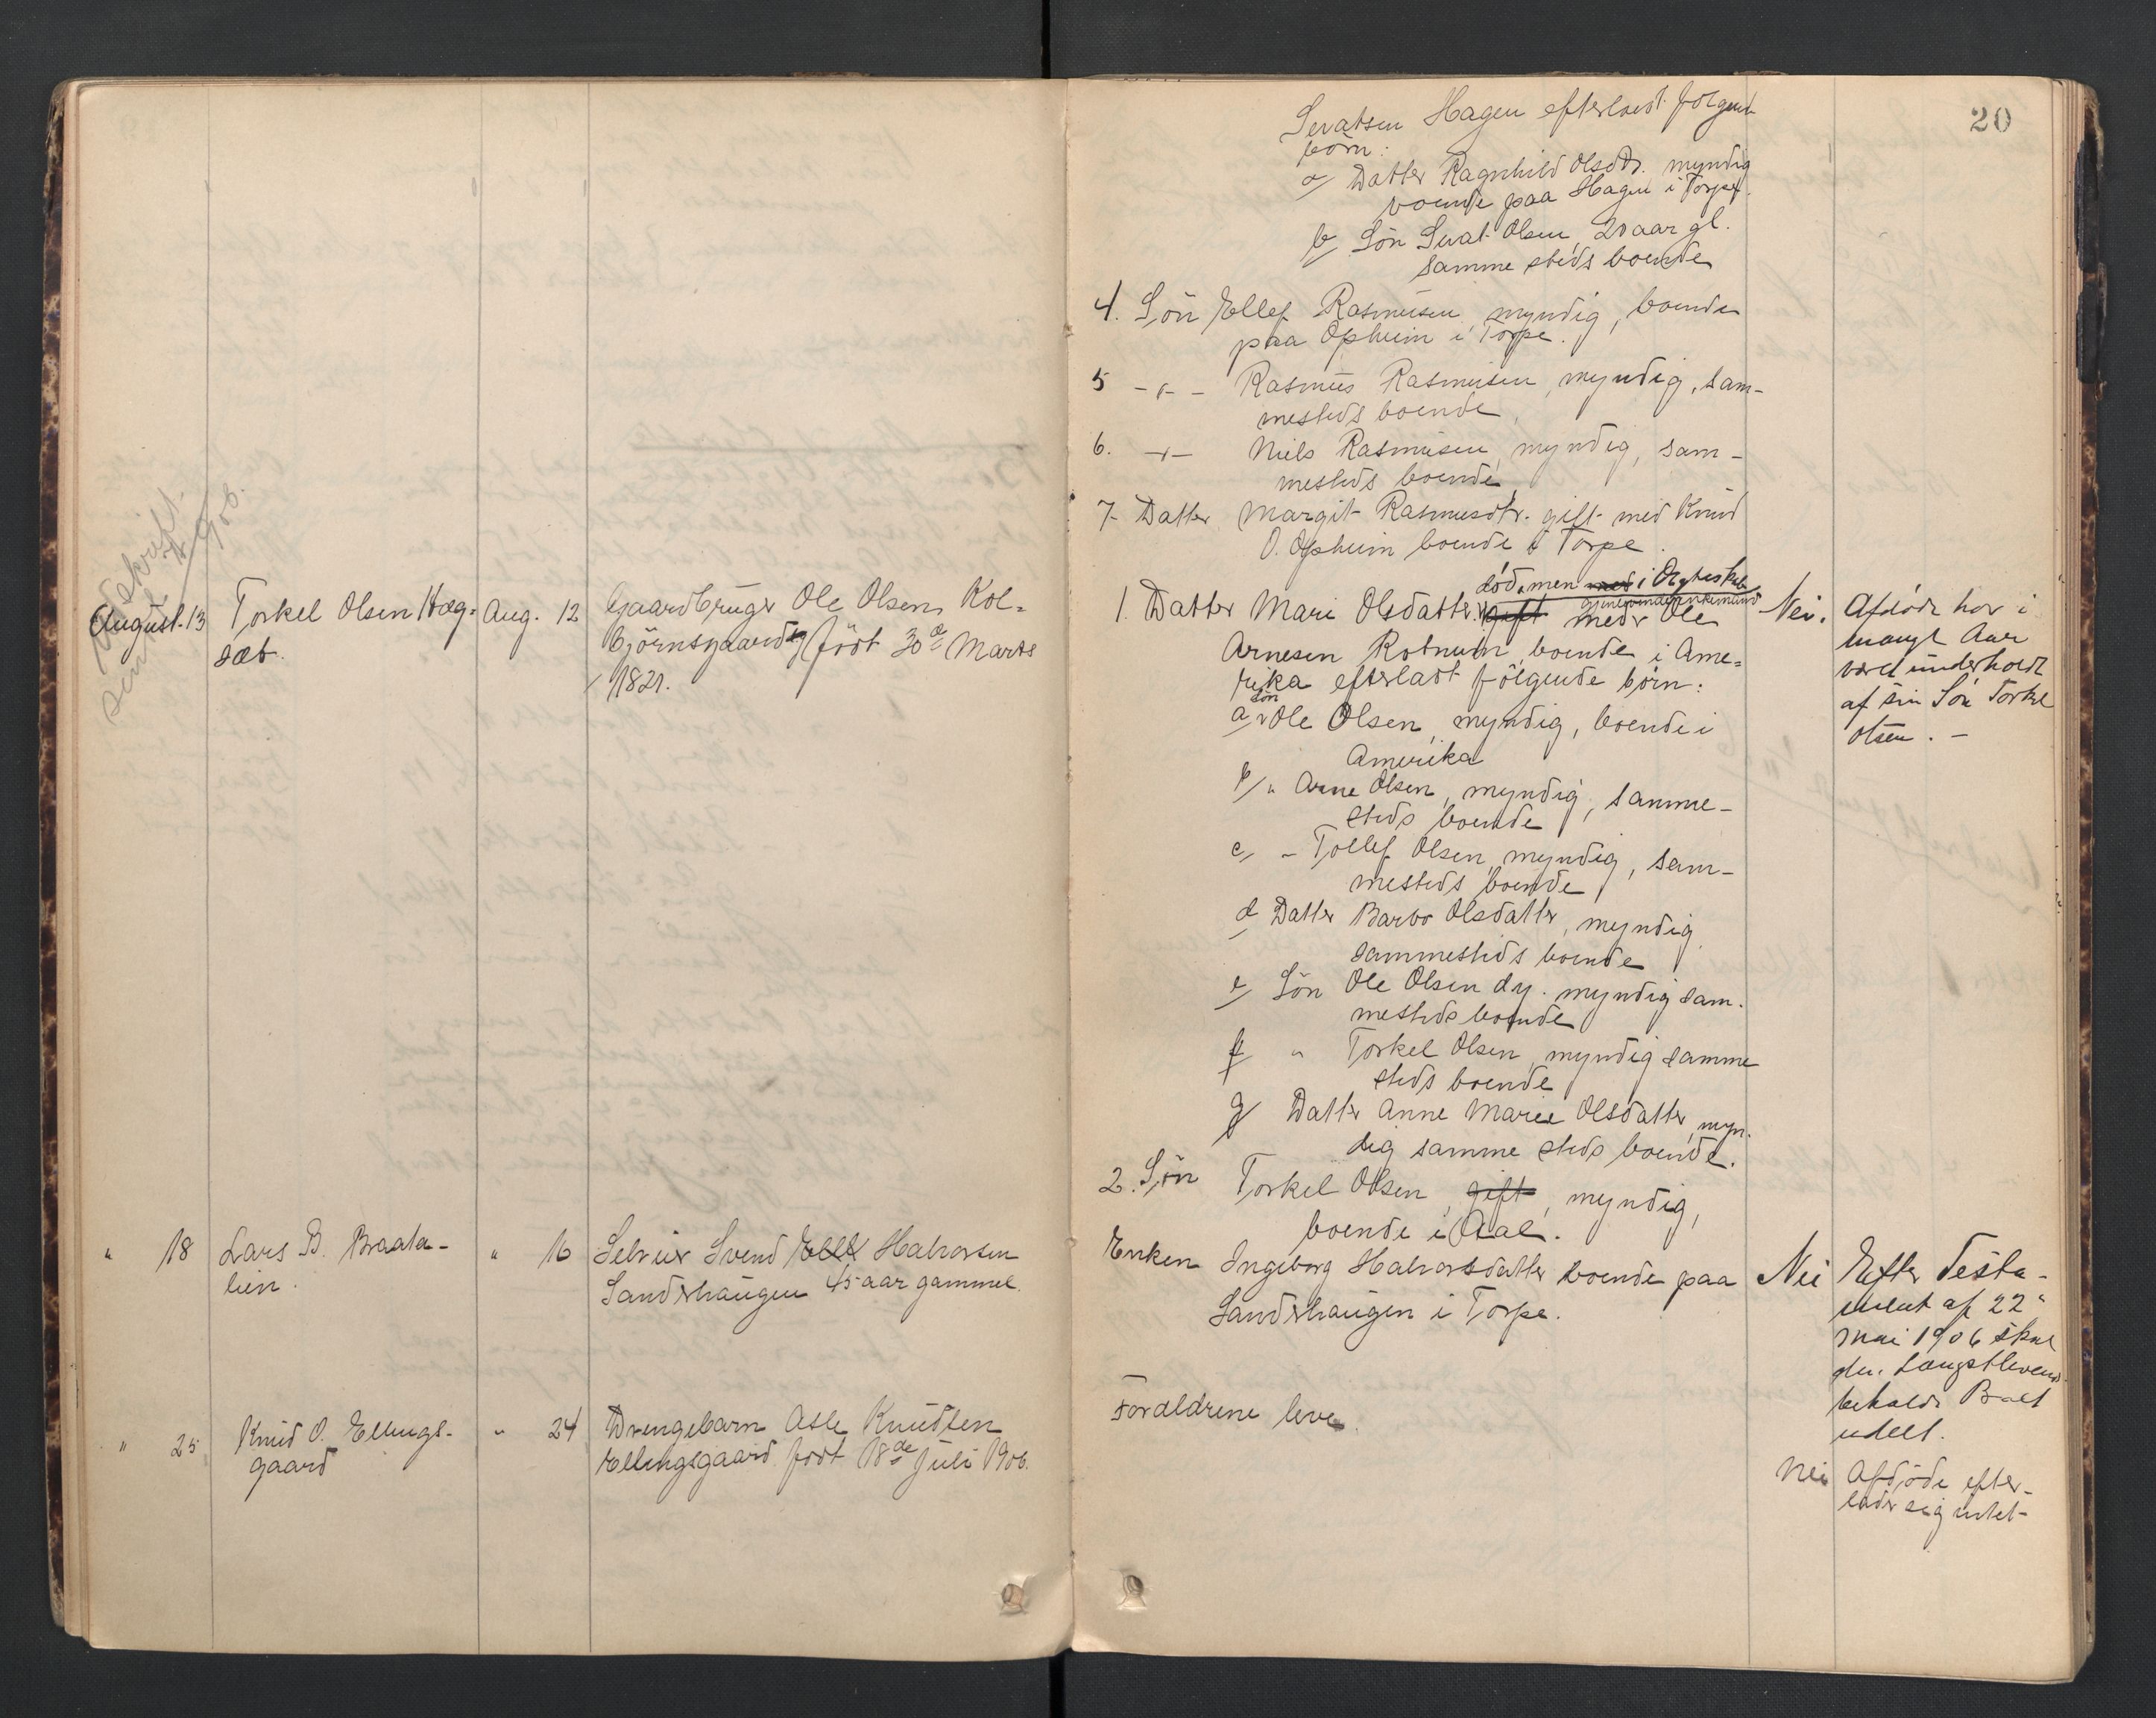 20
Sevatsen Hagen efterladt følgende
børn:
a/ Datter Ragnhild Olsdtr. myndig
boende paa Hagen i Torpe.
b/ Søn Sevat Olsen, 20 aar gl.
samme steds boende
4. Søn Ellef Rasmusen, myndig, boende
paa Opheim i Torpe.
5 - " - Rasmus Rasmusen, myndig, sam-
mesteds boende
6. - " - Niels Rasmusen, myndig, sam-
mesteds boende
7. Datter Margit Rasmusdtr. gift med Knud
O. Opheim boende i Torpe.
Udskrift
sendt 1906.
August 13 Torkel Olsen Hæg-
sæt.
Aug. 12 Gaardbruger Ole Olsen Kol-
bjørnsgaard født 30de Marts
1821.
død, men med i
1. Datter Mari Olsdatter gift med Ole
Arnesen Rotnum, boende i Ame-
rika efterladt følgende børn:
søn
a/ Ole Olsen, myndig, boende i
Amerika
b/ " Arne Olsen, myndig, samme-
steds boende
c/ - Tollef Olsen, myndig, sam-
mesteds boende
d/ Datter Barbo Olsdatter, myndig
sammesteds boende
e/ Søn Ole Olsen dy. myndig sam-
mesteds boende
f " Torkel Olsen, myndig samme
steds boende
g/ Datter Anne Marie Olsdatter, myn-
dig samme steds boende.
2. Søn Torkel Olsen, gift, myndig,
boende i Aal.
Nei. Afdøde har i
mange Aar
været underholdt
af sin Søn Torkel
Olsen. -
" 18 Lars B. Braata-
lien.
" 16 Selveier Svend Halvorsen
Sanderhaugen 45 aar gammel.
Enken Ingeborg Halvorsdatter boende paa
Sanderhaugen i Torpe.
Nei Efter Testa-
ment af 22 "
mai 1906 skal
den Længstlevende
beholde Boet
udelt.
" 25 Knud O. Ellings-
gaard
" 24 Drengebarn Asle Knudsen
Ellingsgaard født 18de Juli 1906.
Forældrene leve.
Nei Afdøde efter-
lader sig intet-